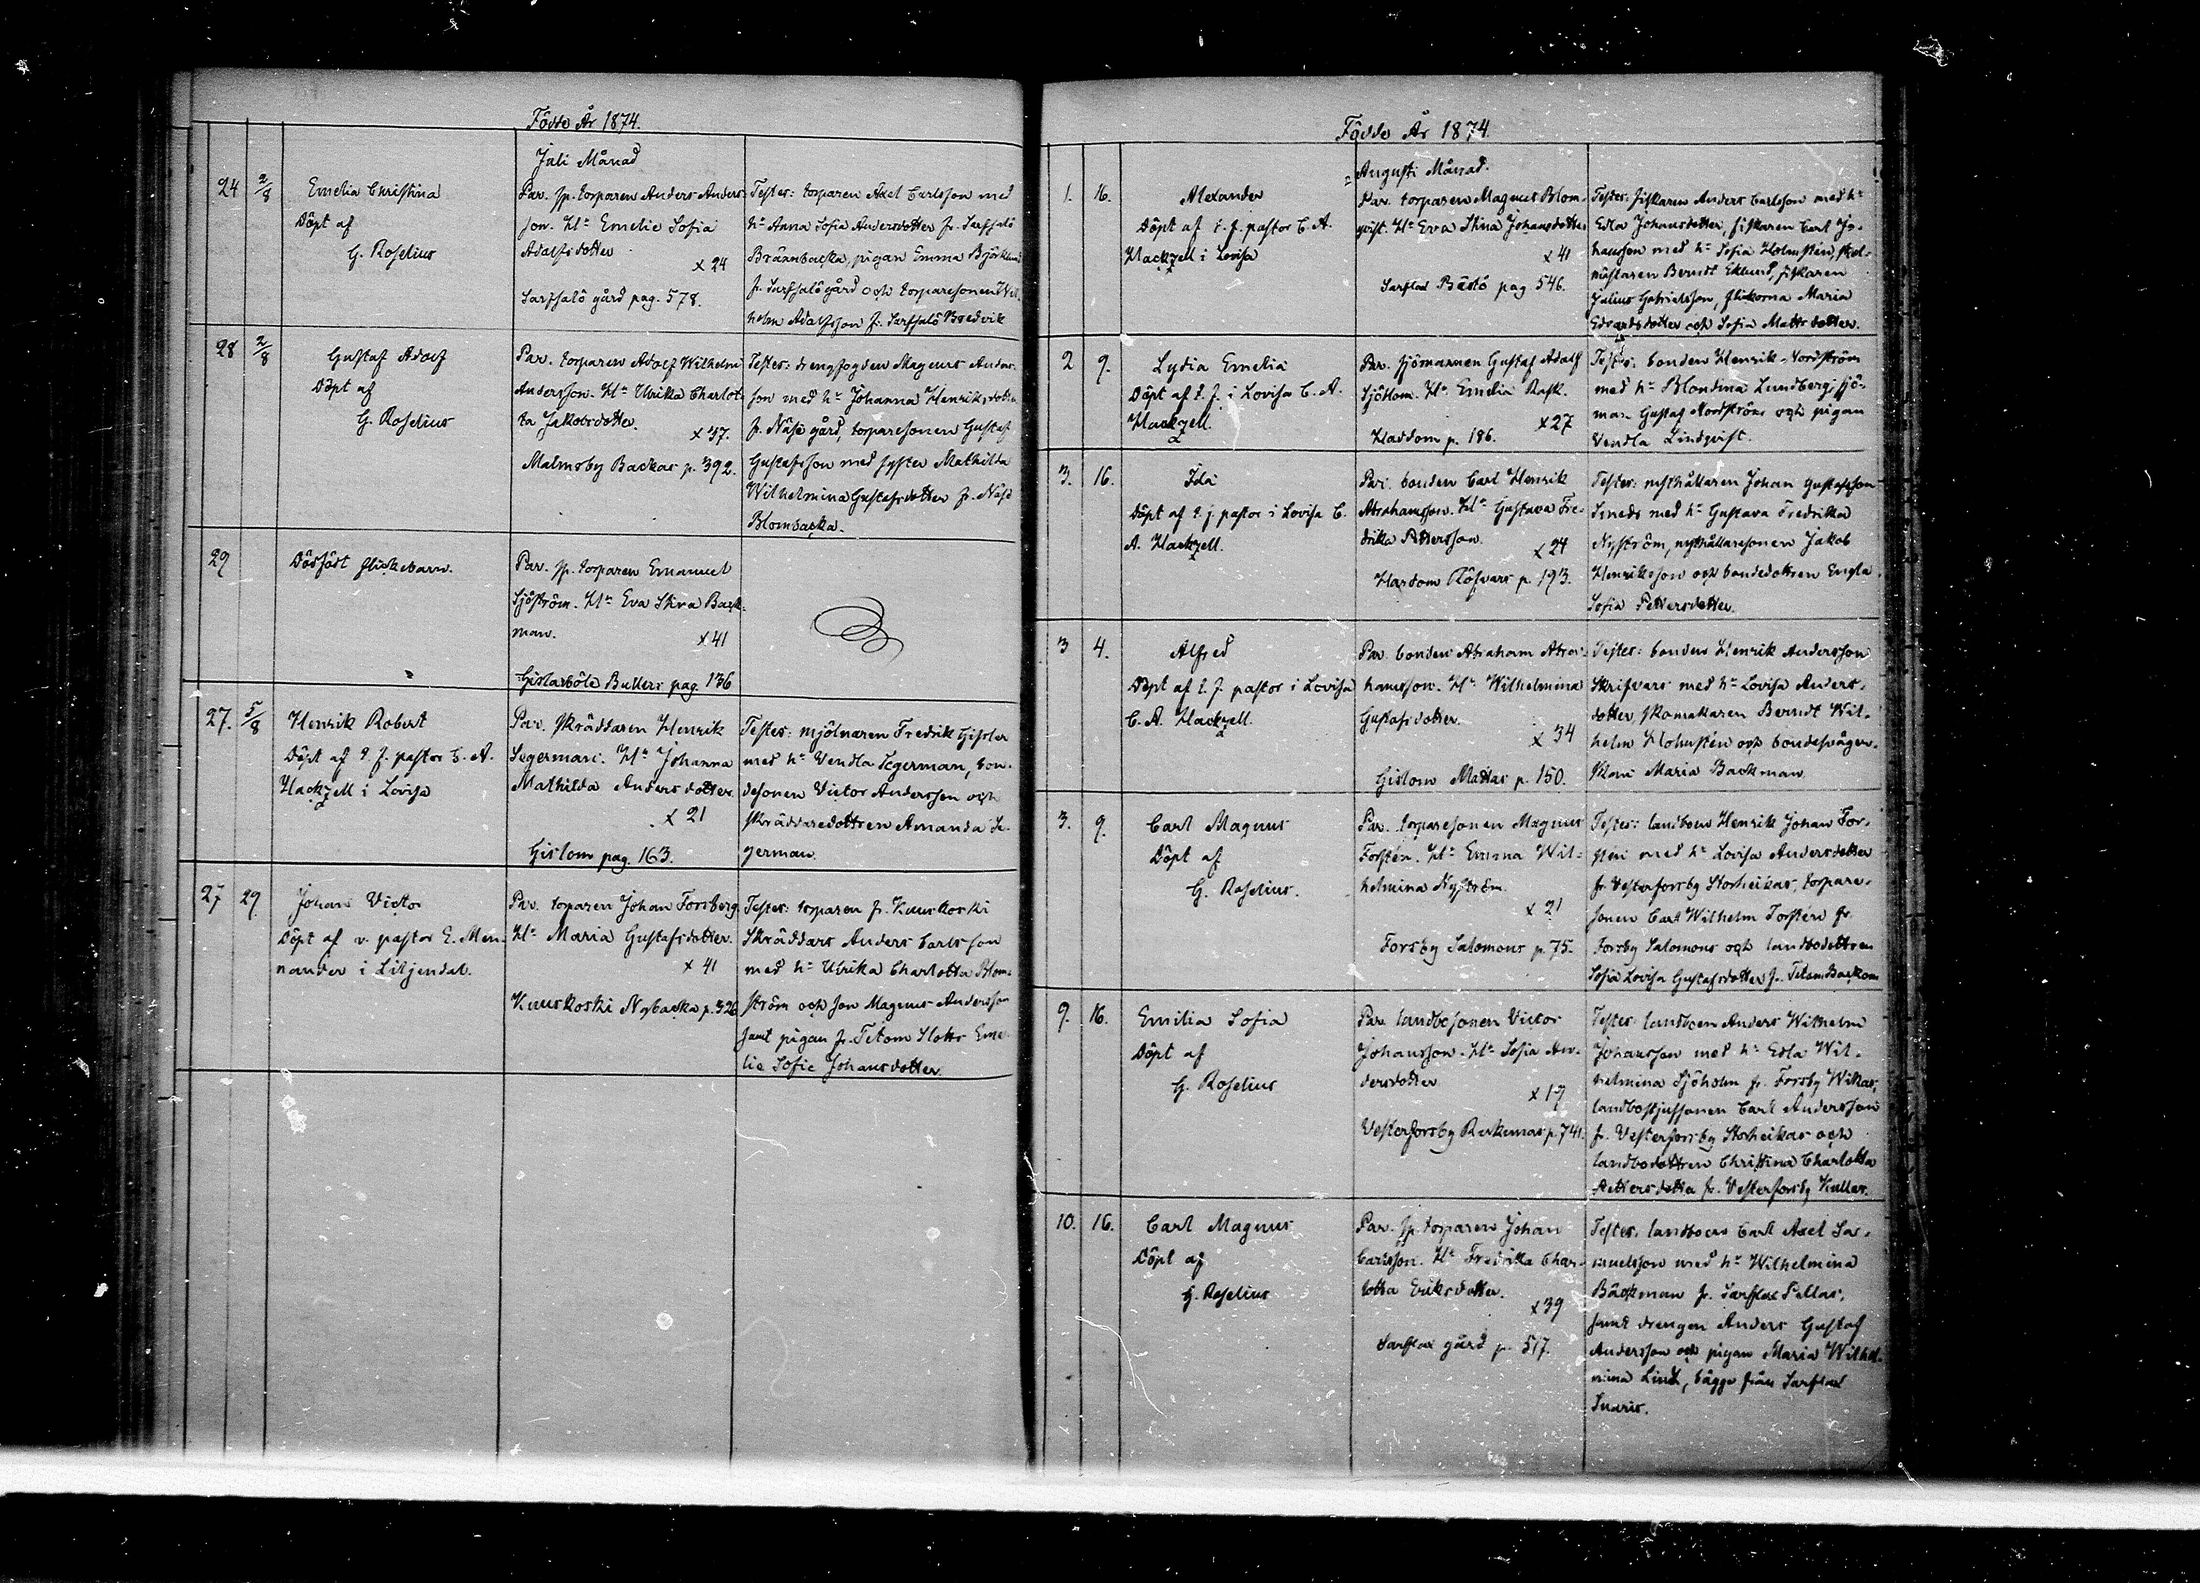 Födde År 1874.
Juli Månad
24 2/8 Emelia Christina
Döpt af
G. Roselius
Par. sp. torparen Anders Anders-
son. H:u Emelie Sofia
Adolfsdotter
x 24
Sarfsalö gård pag. 578.
Testes: torparen Axel Carlsson med
h:u Anna Sofia Andersdotter fr. Sarfsalö
Brännbacka, pigan Emma Björklund
fr. Sarfsalö gård och torparesonen Wil-
helm Adolfsson fr. Sarfsalö Bredvik
28 2/8 Gustaf Adolf
Döpt af
G. Roselius
Par. torparen Adolf Wilhelm
Andersson. H:u Ulrika Charlot-
ta Jakobsdotter.
x 37.
Malmsby Backas p. 392.
Testes: drengfogden Magnus Anders-
son med h:u Johanna Henriksdotter
fr. Näse gård, torparesonen Gustaf
Gustafsson med syster Mathilda
Wilhelmina Gustafsdotter fr. Näse
Blombacka.
29 Dödfödt flickebarn.
Par. sp. torparen Emanuel
Sjöström. H:u Eva Stina Back-
man.
x 41
Gislarböle Bullers pag. 136
27. 5/8 Henrik Robert
Döpt af t. f. pastor C. A.
Hackzell i Lovisa
Par. skräddaren Henrik
Segerman. H:u Johanna
Mathilda Andersdotter
x 21
Gislom pag. 163.
Testes: mjölnaren Fredrik Gisler
med h:u Vendla Segerman, bon-
desonen Victor Andersson och
skräddaredottren Amanda Se-
german.
27 29. Johan Victor
Döpt af v. pastor E. Men-
nander i Liljendal.
Par. torparen Johan Forsberg
H:u Maria Gustafsdotter.
x 41
Kuuskoski Nybacka p. 326
Testes: torparen fr. Kuuskoski
Skräddars Anders Carlsson
med h:u Ulrika Charlotta Blom-
ström och son Magnus Andersson
samt pigan fr. Tetom Slotts Eme-
lie Sofie Johansdotter.
Födde År 1874.
Augusti Månad.
1. 16. Alexander
Döpt af t. f. pastor C. A.
Hackzell i Lovisa
Par. torparen Magnus Blom-
qvist. H:u Eva Stina Johansdotter
x 41
Sarflax Bästö pag 546.
Testes: fiskaren Anders Carlsson med h:u
Edla Johansdotter, fiskaren Carl Jo-
hansson med h:u Sofia Holmstén, skol-
mästaren Berndt Eklund, fiskaren
Julius Gabrielsson, flickorna Maria
Edvardsdotter och Sofia Mattsdotter.
2 9. Lydia Emelia
Döpt af t. f. i Lovisa C. A.
Hackzell.
Par. sjömannen Gustaf Adolf
Sjöblom. H:u Emelia Rask.
x 27
Haddom p. 186.
Testes: bonden Henrik Nordström
med h:u Blondina Lundberg, sjö-
man Gustaf Nordström och pigan
Vendla Lindqvist.
3. 16. Ida
Döpt af t. f. pastor i Lovisa C.
A. Hackzell.
Par. bonden Carl Henrik
Abrahamsson. H:u Gustava Fre-
drika Pettersson.
x 24
Hardom Röfvars p. 193.
Testes: nysthållaren Johan Gustafsson
Smeds med h:u Gustava Fredrika
Nyström, nysthållaresonen Jakob
Henriksson och bondedottren Engla
Sofia Pettersdotter.
3 4. Alfred
Döpt af t. f. pastor i Lovisa
C. A. Hackzell.
Par. bonden Abraham Abra-
hamsson. H:u Wilhelmina
Gustafsdotter.
x 34
Gislom Mattas p. 150.
Testes: bonden Henrik Andersson
Skrifvars med h:u Lovisa Anders-
dotter, skomakaren Berndt Wil-
helm Holmstén och bondesvåger-
skan Maria Backman.
3. 9. Carl Magnus
Döpt af
G. Roselius.
Par. torparesonen Magnus
Forstén. H:u Emma Wil-
helmina Nyström.
x 21
Forsby Salomons p. 75.
Testes: landboen Henrik Johan For-
stén med h:u Lovisa Andersdotter
fr. Vesterforsby Storheikas, torpare-
sonen Carl Wilhelm Forstén fr.
Forsby Salomons och landbodottren
Sofia Lovisa Gustafsdotter fr. Tetom Backom
9. 16. Emilia Sofia
Döpt af
G. Roselius
Par. landbosonen Victor
Johansson. H:u Sofia An-
dersdotter
x 19
Vesterforsby Reckemas p. 741.
Testes: landboen Anders Wilhelm
Johansson med h:u Edla Wil-
helmina Sjöholm fr. Forsby Wikas,
landbostjufsonen Carl Andersson
fr. Vesterforsby Storheikas och
landbodottren Christina Charlotta
Pettersdotter fr. Vesterforsby Kullas.
10. 16. Carl Magnus
Döpt af
G. Roselius
Par. sp. torparen Johan
Carlsson. H:u Fredrika Char-
lotta Eriksdotter.
x 39
Sarflax gård p. 517.
Testes: landboen Carl Axel Sa-
muelsson med h:u Wilhelmina
Bäckman fr. Sarflax Pellas,
samt drengen Anders Gustaf
Andersson och pigan Maria Wilhel-
mina Lind, bägge från Sarflax